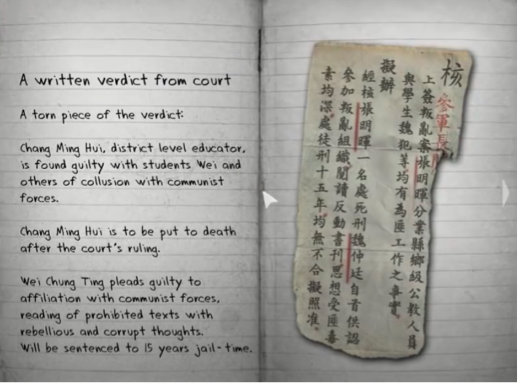 A written verdict from court
A torn piece of the verdict:
Chang Ming Hui, district level educator,
is found guilty with students Wei and
others of collusion with communist
forces.
Chang Ming Hui is to be put to death
after the court's ruling.
Wei Chung Ting pleads guilty to
affiliation with communist forces,
reading of prohibited texts with
rebellious and corrupt thoughts.
Will be sentenced to 15 years jail-time.
核
參軍長
上簽叛亂案張明暉分業縣鄉級公教人員
與學生魏犯等均有為匪工作之事實
擬辦
經核張明暉一名處死刑魏仲廷自首供認
參加叛亂組織閱讀反動書刊思想受匪毒
素均深處徒刑十五年均無不合擬照准